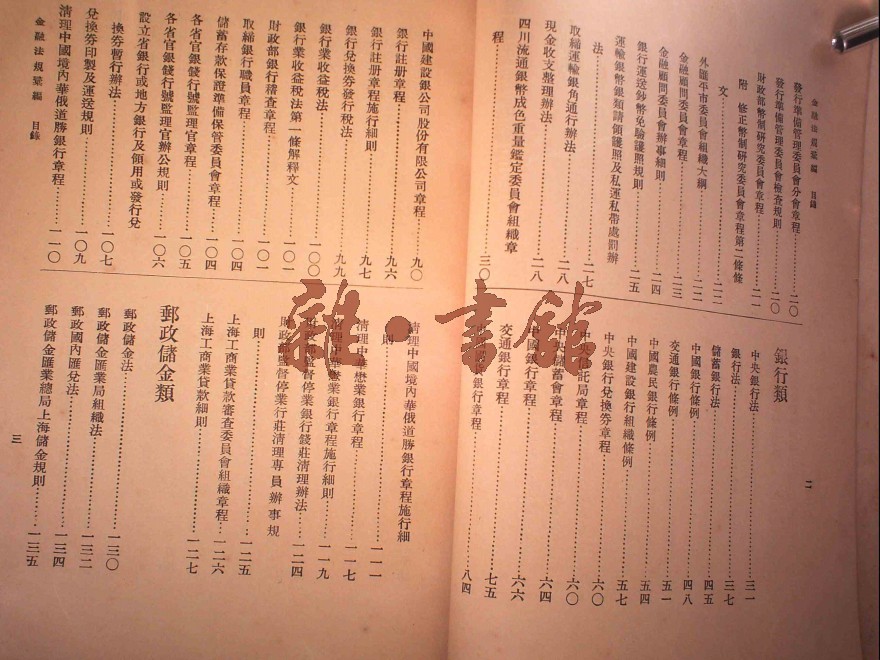 金融法規彙編　目錄
發行準備管理委員會分會章程……二〇
發行準備管理委員會檢查規則……二〇
財政部幣制研究委員會章程……二一
附　修正幣制研究委員會章程第二條條
文……二二
外匯平市委員會組織大綱……二二
金融顧問委員會章程……二三
金融顧問委員會辦事細則……二四
銀行運送鈔幣免驗護照規則……二五
運輸銀幣銀類請領護照及私運私帶處罰辦
法……二七
取締運輸銀角通行辦法……二八
現金收支整理辦法……二八
四川流通銀幣成色重量鑑定委員會組織章
程……三〇
銀行類
中央銀行法……三一
銀行法……三七
儲蓄銀行法……四五
中國銀行條例……四八
交通銀行條例……五一
中國農民銀行條例……五四
中國建設銀行組織條例……五七
中央銀行兌換券章程……六〇
中央信託局章程……六〇
中央儲蓄會章程……六四
中國銀行章程……六六
交通銀行章程……七五
銀行章程……八四
二
中國建設銀公司股份有限公司章程……九〇
銀行註册章程……九六
銀行註册章程施行細則……九七
銀行兌換券發行稅法……九九
銀行業收益稅法……一〇〇
銀行業收益稅法第一條解釋文……一〇一
財政部銀行稽查章程……一〇一
取締銀行職員章程……一〇四
儲蓄存款保證準備保管委員會章程……一〇四
各省官銀錢行號監理官章程……一〇五
各省官銀錢行號監理官辦公規則……一〇六
設立省銀行或地方銀行及領用或發行兌
換券暫行辦法……一〇七
兌換券印製及運送規則……一〇九
清理中國境內華俄道勝銀行章程……一一〇
清理中國境內華俄道勝銀行章程施行細
則……一一一
清理中華懋業銀行章程……一一七
清理中華懋業銀行章程施行細則……一一九
財政部監督停業銀行錢莊清理辦法……一二四
財政部監督停業行莊清理專員辦事規
則……一二五
上海工商業貸款審查委員會組織章程……一二六
上海工商業貸款細則……一二七
郵政儲金類
郵政儲金法……一三〇
郵政儲金匯業局組織法……一三二
郵政國內匯兌法……一三四
郵政儲金匯業總局上海儲金規則……一三五
金融法規彙編　目錄
三